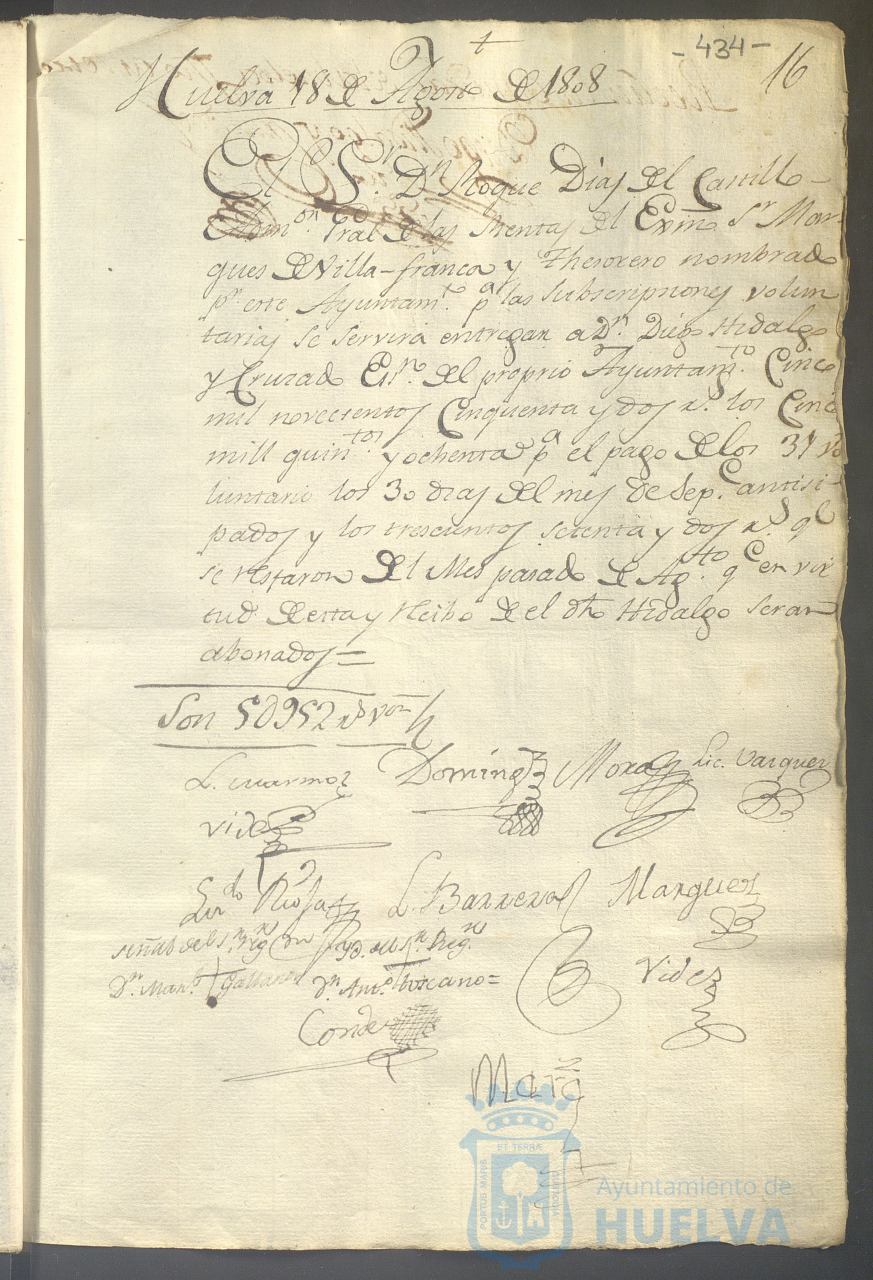 - 434 -
16
+
Huelva 18 de Agosto de 1808
El Sr. Dn Roque Diaz del Castillo
Admon. Pral de las Rentas del Exmo Sr Mar-
ques de Villa-franca y Thesorero nombrado
pr. este Ayuntamto. pa las subscripciones volun
tarias se servirá entregar a Dn. Diego Hidalgo
y Cruzado Esno. del proprio Ayuntamto. Cinco
mil novecientos Cinquenta y dos rs. los Cinco
mill quintos y ochenta pa el pago de los 31 vo
luntario los 30 dias del mes de Sepe. antisi-
pados y los trescientos setenta y dos rs. qe
se restaron del Mes pasado de Agto. qe en vir
tud de esta y Recibo de el dho Hidalgo seran
abonados =
Son 5d952 rs. von
Domingz
Mora
Lic. Vazquez
Vides
Licdo Rioja
L. Barrera
Marquez
señal del Sr. Regor
yd. del Sr. Regor
Dn. Manl. + Galbano
Dn. Anto. + toscano =
Videz
Conde
ET TERRÆ
PORTUS MARIS
CUSTODIA
Ayuntamiento de
HUELVA